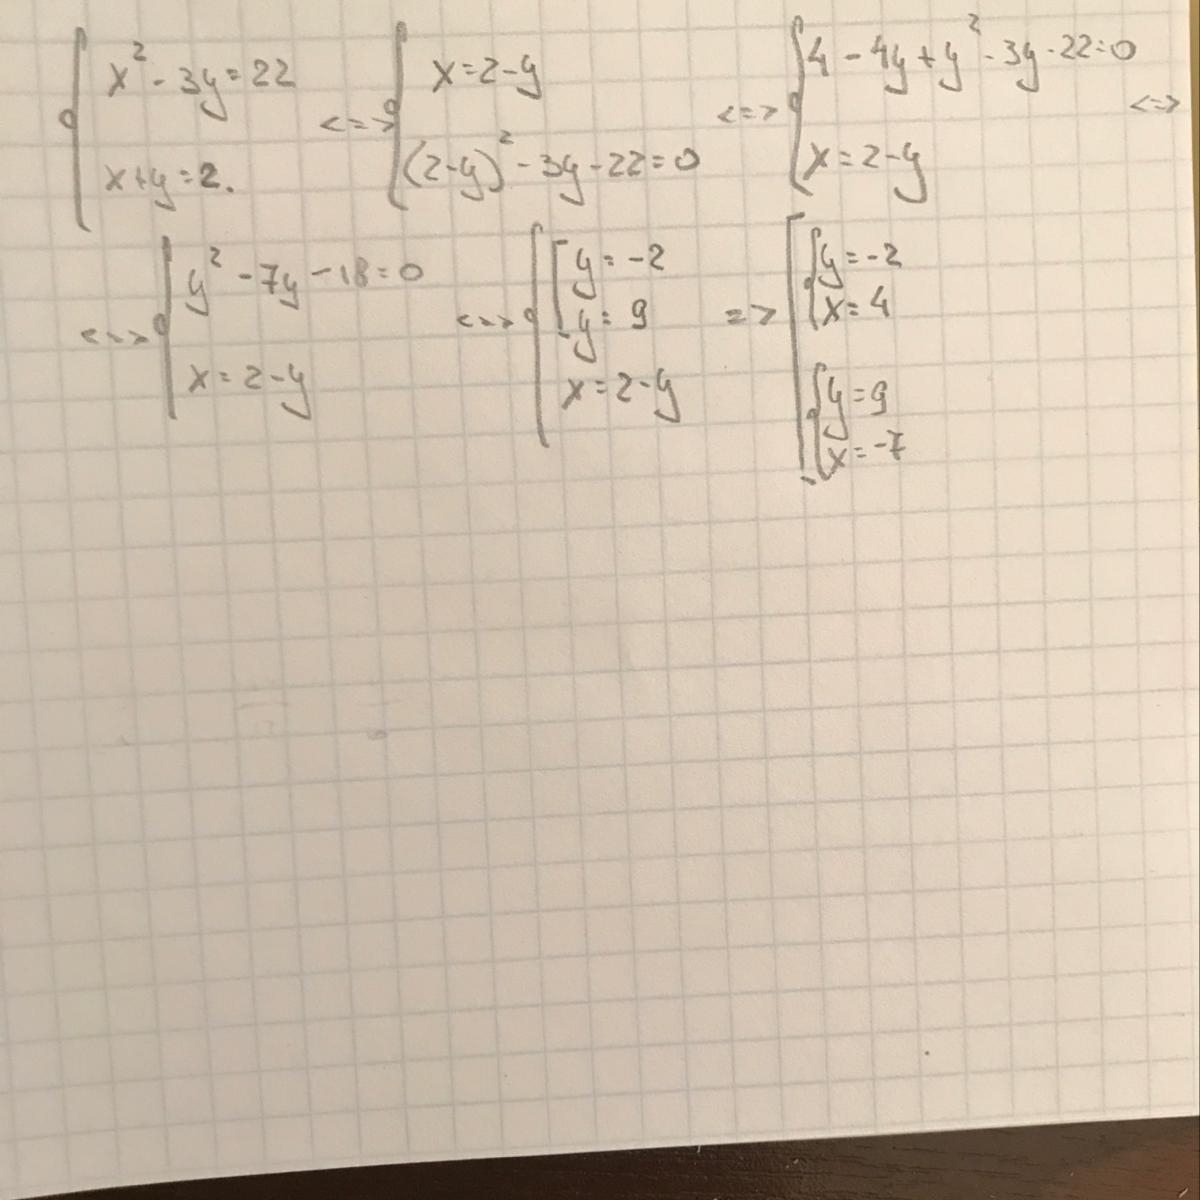 x² - 3y = 22
x + y = 2.
<=>
x = 2 - y
(2 - y)² - 3y - 22 = 0
<=>
4 - 4y + y² - 3y - 22 = 0
x = 2 - y
<=>
<=>
y² - 7y - 18 = 0
x = 2 - y
<=>
y = -2
y = 9
x = 2 - y
=>
y = -2
x = 4
y = 9
x = -7